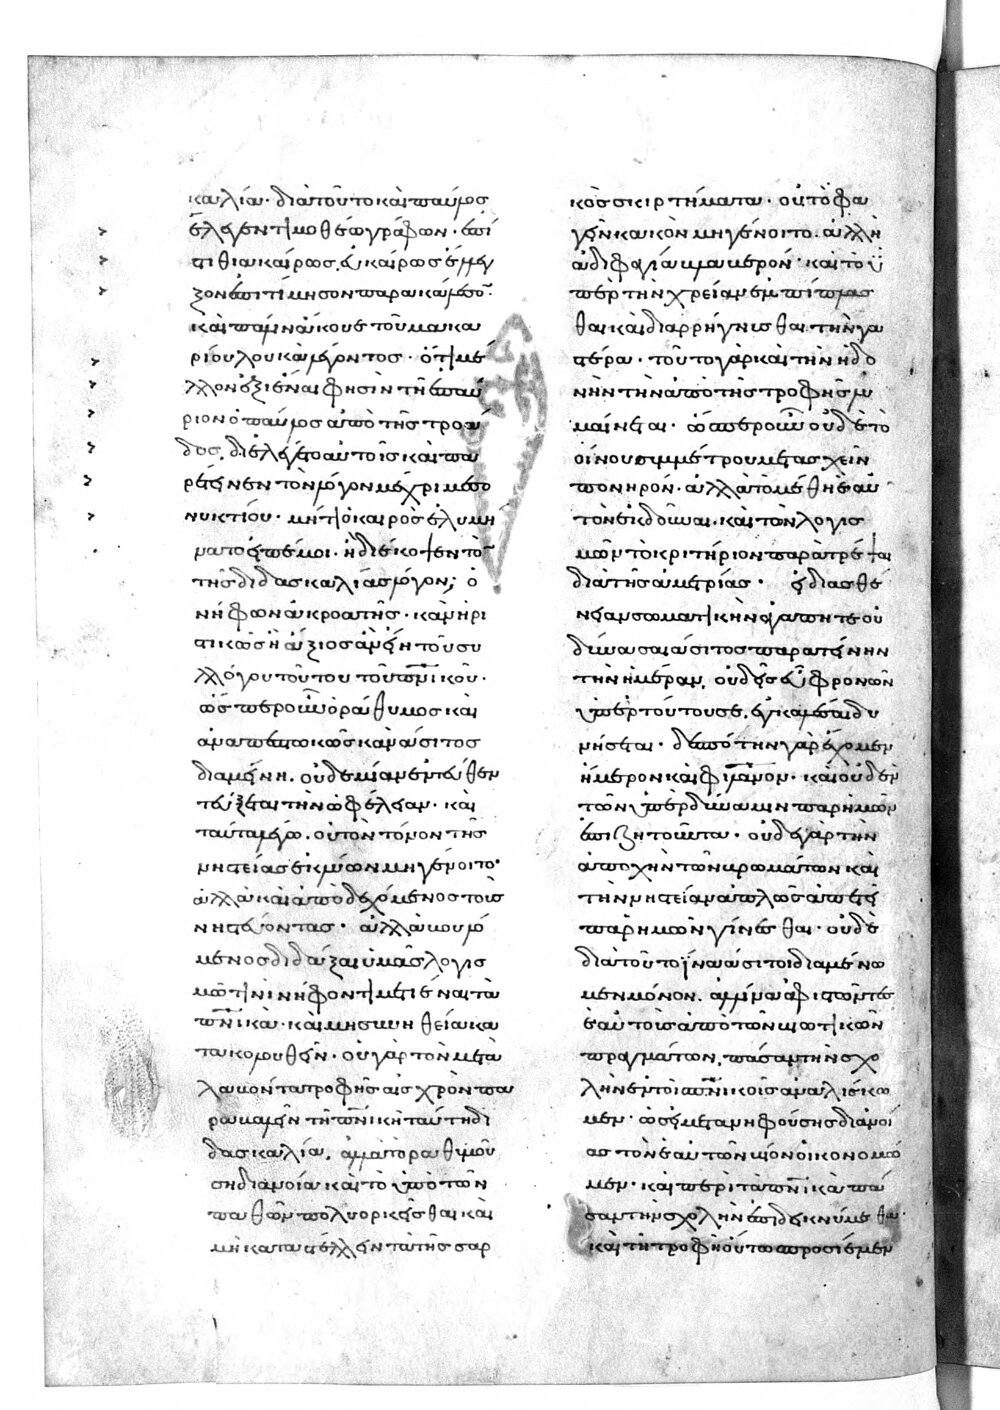 καλία· διὰ τοῦτο καὶ παῦλος
ἔλεγεν τιμοθέω γράφων· ἐπί
στηθι ἀκαίρως, εὐκαίρως ἔλεγ
ξον ἐπιτίμησον παρακάλεσο(ν)·
καὶ πάλιν ἄκουε τοῦ μακα
ρίου λουκᾶ λέγοντος· ὅτι μέ
λλον ἐξιέναι φησὶν τῆ ἐπαύ
ριον ὁ παῦλος ἀπὸ τῆς τρωά
δος, διελέγετο αὐτοῖς καὶ πα
ρέτεινεν τὸν λόγον μέχρι μεσο
νυκτίου· μήτι ὁ καιρὸς ἐλυμή
νατο εἰπέ μοι· ἢ διέκοψεν τὸ(ν)
τῆς διδασκαλίας λόγον; ὁ
νήφων ἀκροατὴς· κἂν ἠρι
στικῶς ἢ ἄξιος ἂν εἴη τοῦ συ
λλόγου τούτου τοῦ πνικοῦ·
ὥσπερ οὖν ὁ ράθυμος καὶ
ἀναπεπτωκῶς κἂν ἄσιτος
διαμένη. οὐδεμίαν ἐντεῦθεν
τεύξεται τὴν ὠφέλειαν· καὶ
ταῦτα λέγω. οὐ τὸν τόνον τῆς
νηστείας ἐκλύων μὴ γένοιτο·
ἀλλὰ καὶ ἀποδεχόμενος τοὺς
νηστεύοντας· ἀλλὰ βουλό
μενος διδάξαι ὑμᾶς λογισ
μῶ τινι νήφοντι μετιέναι τὰ
πνικά· καὶ μὴ συνηθεία κα
τακολουθεῖν· οὐ γὰρ τὸν μετα
λαβόντα τροφῆς αἰσχρὸν πα
ραβαλεῖν τῆ πνικῆ ταύτη δι
δασκαλία, ἀλλὰ τὸ ραθυμού
ση διανοία καὶ τὸ ὑπὸ τῶν
παθῶν πολιορκεῖσθαι καὶ
μὴ καταστέλλειν τὰ τῆς σαρ
κὸς σκιρτήματα· οὐ τὸ φα
γεῖν κακὸν μὴ γένοιτο. ἀλλ' ἡ
ἀδιφαγία βλαβερόν· καὶ τὸ ὑ
πὲρ τὴν χρείαν ἐμπίπλασ
θαι καὶ διαρρήγνυσθαι τὴν γα
στέρα· τοῦτο γὰρ καὶ τὴν ἡδο
νὴν τὴν ἀπὸ τῆς τροφῆς λυ
μαίνεται· ὥσπερ οὖν οὐδὲ τὸ
οἴνου συμμέτρου μετασχεῖν
πονηρόν· ἀλλὰ τὸ μέθη ἑαυ
τὸν ἐκδοῦναι. καὶ τῶν λογισ
μῶν τὸ κριτήριον παρατρέψαι
διὰ τῆς ἀμετρίας· εἰ δι' ἀσθέ
νειαν σωματικὴν ἀγαπητὲ οὐ
δύνασαι ἄσιτος παρατεῖναι
τὴν ἡμέραν. οὐδεὶς εὖ φρονῶν
ὑπὲρ τούτου σε. ἐγκαλέσαι δυ
νήσεται· δεσπότην γὰρ ἔχομεν
ἥμερον καὶ φιλάνον· καὶ οὐδὲν
τῶν ὑπὲρ δύναμιν παρ' ἡμῶν
ἐπιζητοῦντα· οὐδὲ γὰρ τὴν
ἀποχὴν τῶν βρωμάτων καὶ
τὴν νηστείαν ἁπλῶς ἀπαιτεῖ
παρ' ἡμῶν γίνεσθαι· οὐδὲ
διὰ τοῦτο ἵνα ἄσιτοι διαμένω
μεν μόνον. ἀλλ' ἵνα ἀφιστῶντες
ἑαυτοὺς ἀπὸ τῶν βιωτικῶν
πραγμάτων, πᾶσαν τὴν σχο
λὴν ἐν τοῖς πνικοῖς ἀναλίσκω
μεν· ὡς εἰ μετὰ νηφούσης διανοί
ας τὸν ἑαυτῶν βίον οἰκονομῶ
μεν· καὶ περὶ τὰ πνικὰ πᾶ
σαν τὴν σχολὴν ἐπιδεικνύμεθα·
καὶ τῆ τροφῆ οὕτω προσίεμεν